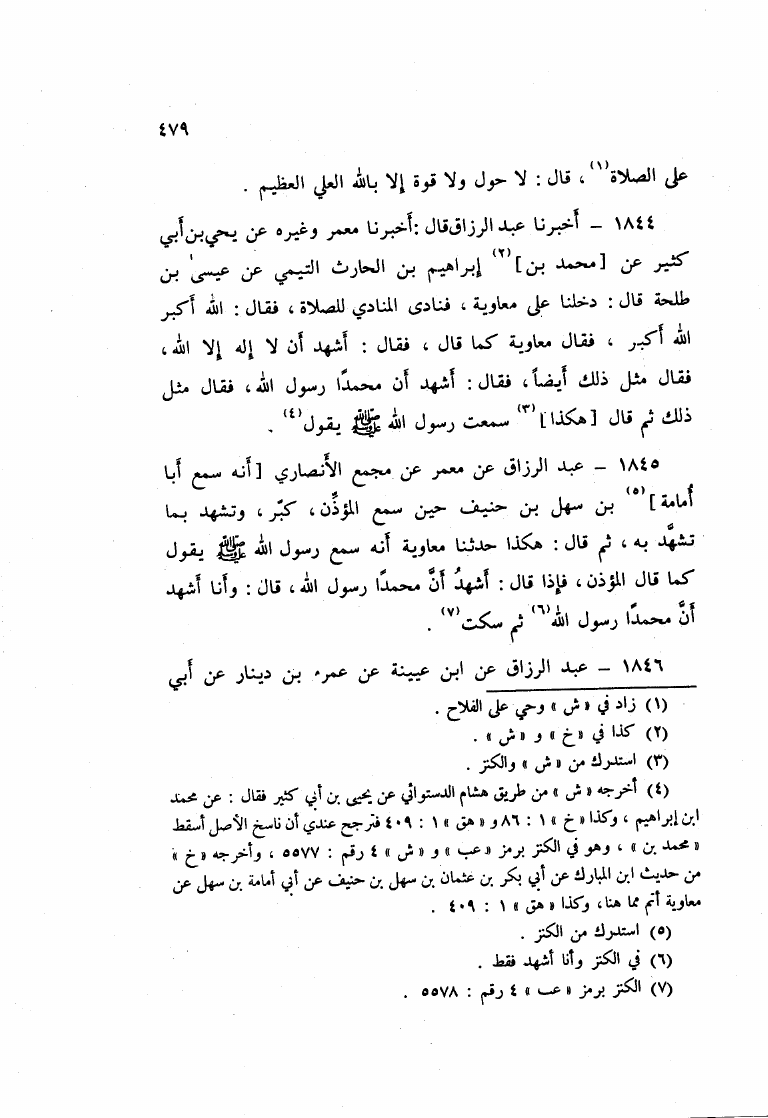 ٤٧٩
على الصلاة(١) ، قال : لا حول ولا قوة إلا بالله العلي العظيم .
١٨٤٤ – أخبرنا عبد الرزاق قال : أخبرنا معمر وغيره عن يحي بن أبي
كثير عن [ محمد بن ](٢) إبراهيم بن الحارث التيمي عن عيسىٰ بن
طلحة قال : دخلنا على معاوية ، فنادى المنادي للصلاة ، فقال : الله أكبر
الله أكبر ، فقال معاوية كما قال ، فقال : أشهد أن لا إله إلا الله ،
فقال مثل ذلك أيضاً ، فقال : أشهد أن محمدًا رسول الله ، فقال مثل
ذلك ثم قال [ هكذا ](٣) سمعت رسول الله ﷺ يقول(٤) .
١٨٤٥ – عبد الرزاق عن معمر عن مجمع الأنصاري [ أنه سمع أبا
أمامة ](٥) بن سهل بن حنيف حين سمع المؤذِّن ، كبّر ، وتشهد بما
تشهَّد به ، ثم قال : هكذا حدثنا معاوية أنه سمع رسول الله ﷺ يقول
كما قال المؤذن ، فإذا قال : أشهدُ أنَّ محمدًا رسول الله ، قال : وأنا أشهد
أنَّ محمدًا رسول الله(٦) ثم سكت(٧) .
١٨٤٦ – عبد الرزاق عن ابن عيينة عن عمرو بن دينار عن أبي
(١) زاد في « ش » وحي على الفلاح .
(٢) كذا في « خ » و « ش » .
(٣) استدرك من « ش » والكنز .
(٤) أخرجه « ش » من طريق هشام الدستوائي عن يحيى بن أبي كثير فقال : عن محمد
ابن إبراهيم ، وكذا « خ » ١ : ٨٦ و « هق » ١ : ٤٠٩ فترجح عندي أن ناسخ الأصل أسقط
« محمد بن » ، وهو في الكنز برمز « عب » و « ش » ٤ رقم : ٥٥٧٧ ، وأخرجه « خ »
من حديث ابن المبارك عن أبي بكر بن عثمان بن سهل بن حنيف عن أبي أمامة بن سهل عن
معاوية أتم مما هنا ، وكذا « هق » ١ : ٤٠٩ .
(٥) استدرك من الكنز .
(٦) في الكنز وأنا أشهد فقط .
(٧) الكنز برمز « عب » ٤ رقم : ٥٥٧٨ .